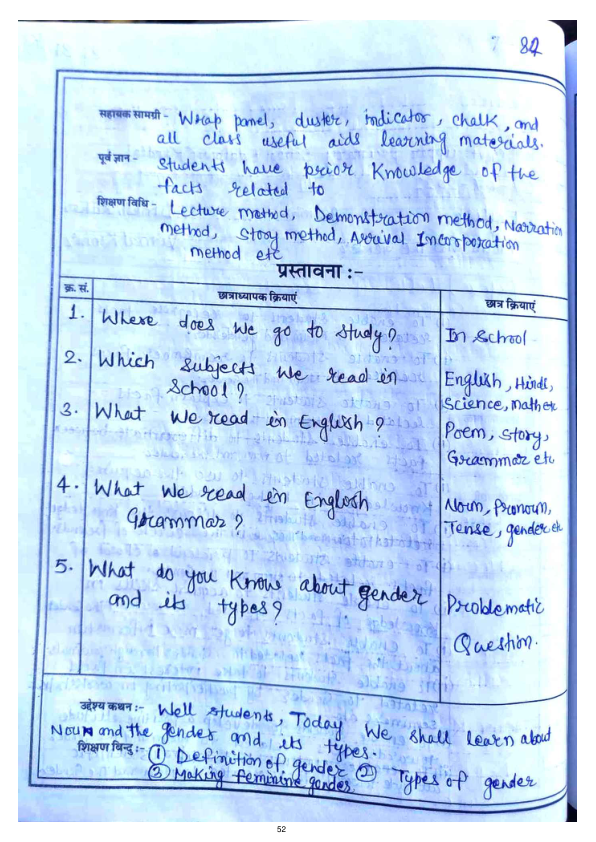 82
सहायक सामग्री - Wrap panel, duster, indicator, chalk, and
all class useful aids learning materials.
पूर्व ज्ञान - Students have prior Knowledge of the
facts related to
शिक्षण विधि - Lecture method, Demonstration method, Narration
method, story method, Incorporation
method etc
प्रस्तावना :-
क्र. सं. छात्राध्यापक क्रियाएं छात्र क्रियाएं
1. Where does we go to study? In School
2. Which subjects we read in
School? English, Hindi,
Science, math etc
3. What we read in English? Poem, story,
Grammar etc
4. What we read in English
Grammar? Noun, Pronoun,
Tense, gender etc
5. What do you Know about gender
and its types? Problematic
Question.
उद्देश्य कथन :- Well students, Today We shall learn about
Noun and the gender and its types.
शिक्षण बिन्दु :- ① Definition of gender ② Types of gender
③ Making feminine gender
52